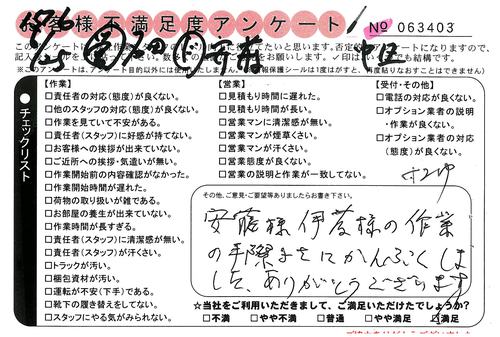 お客様不満足度アンケート
No 063403
【作業】
□責任者の対応(態度)が良くない。
□他のスタッフの対応(態度)が良くない。
□作業を見ていて不安がある。
□責任者(スタッフ)に好感が持てない。
□お客様への挨拶が出来ていない。
□ご近所への挨拶・気遣いが無い。
□作業開始前の内容確認がなかった。
□作業開始時間が遅れた。
□荷物の取り扱いが雑である。
□お部屋の養生が出来ていない。
□作業時間が長すぎる。
□責任者(スタッフ)に清潔感が無い。
□責任者(スタッフ)が汗くさい。
□トラックが汚い。
□梱包資材が汚い。
□運転が不安(下手)である。
□靴下の履き替えをしてない。
□スタッフにやる気がみられない。
【営業】
□見積もり時間に遅れた。
□見積もり時間が長い。
□営業マンに清潔感が無い。
□営業マンが煙草くさい。
□営業マンが汗くさい。
□営業態度が良くない。
□営業の説明と作業が一致してない。
【受付・その他】
□電話の対応が良くない。
□オプション業者の説明
・作業が良くない。
□オプション業者の対応
(態度)が良くない。
チェックリスト
その他、ご意見・ご要望等ありましたらお書き下さい。
安藤様伊藤様の作業
の手際よさにかんぷくしま
した、ありがとうございます
☆当社をご利用いただきまして、ご満足いただけたでしょうか?
□不満 □やや不満 □普通 □やや満足 ☑満足